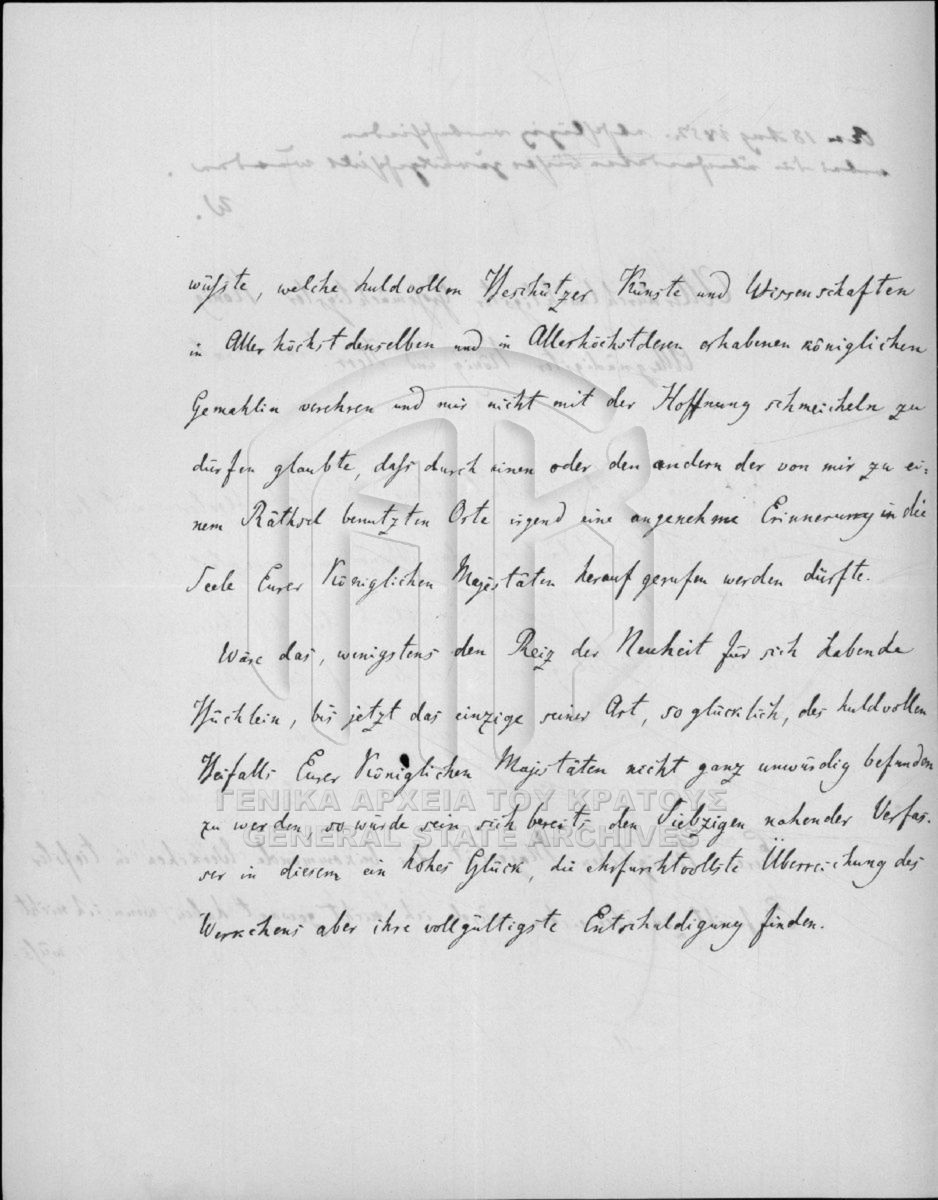 wüßte, welche huldvollen Beschützer Künste und Wissenschaften
in Allerhöchstdenselben und in Allerhöchstderen erhabenen königlichen
Gemahlin verehren und mir nicht mit der Hoffnung schmeicheln zu
dürfen glaubte, daß durch einen oder den andern der von mir zu ei=
nem Räthsel benutzten Orte irgend eine angenehme Erinnerung in die
Seele Eurer Königlichen Majestäten herauf gerufen werden dürfte.
Wäre das, wenigstens den Reiz der Neuheit für sich habende
Büchlein, bis jetzt das einzige seiner Art, so glücklich, des huldvollen
Beifalls Eurer Königlichen Majestäten nicht ganz unwürdig befunden
zu werden, so würde sein sich bereits den Siebzigen nahender Verfas=
ser in diesem ein hohes Glück, die ehrfurchtvollste Überreichung des
Werkchens aber ihre vollgültigste Entschuldigung finden.
ΓΕΝΙΚΑ ΑΡΧΕΙΑ ΤΟΥ ΚΡΑΤΟΥΣ
GENERAL STATE ARCHIVES